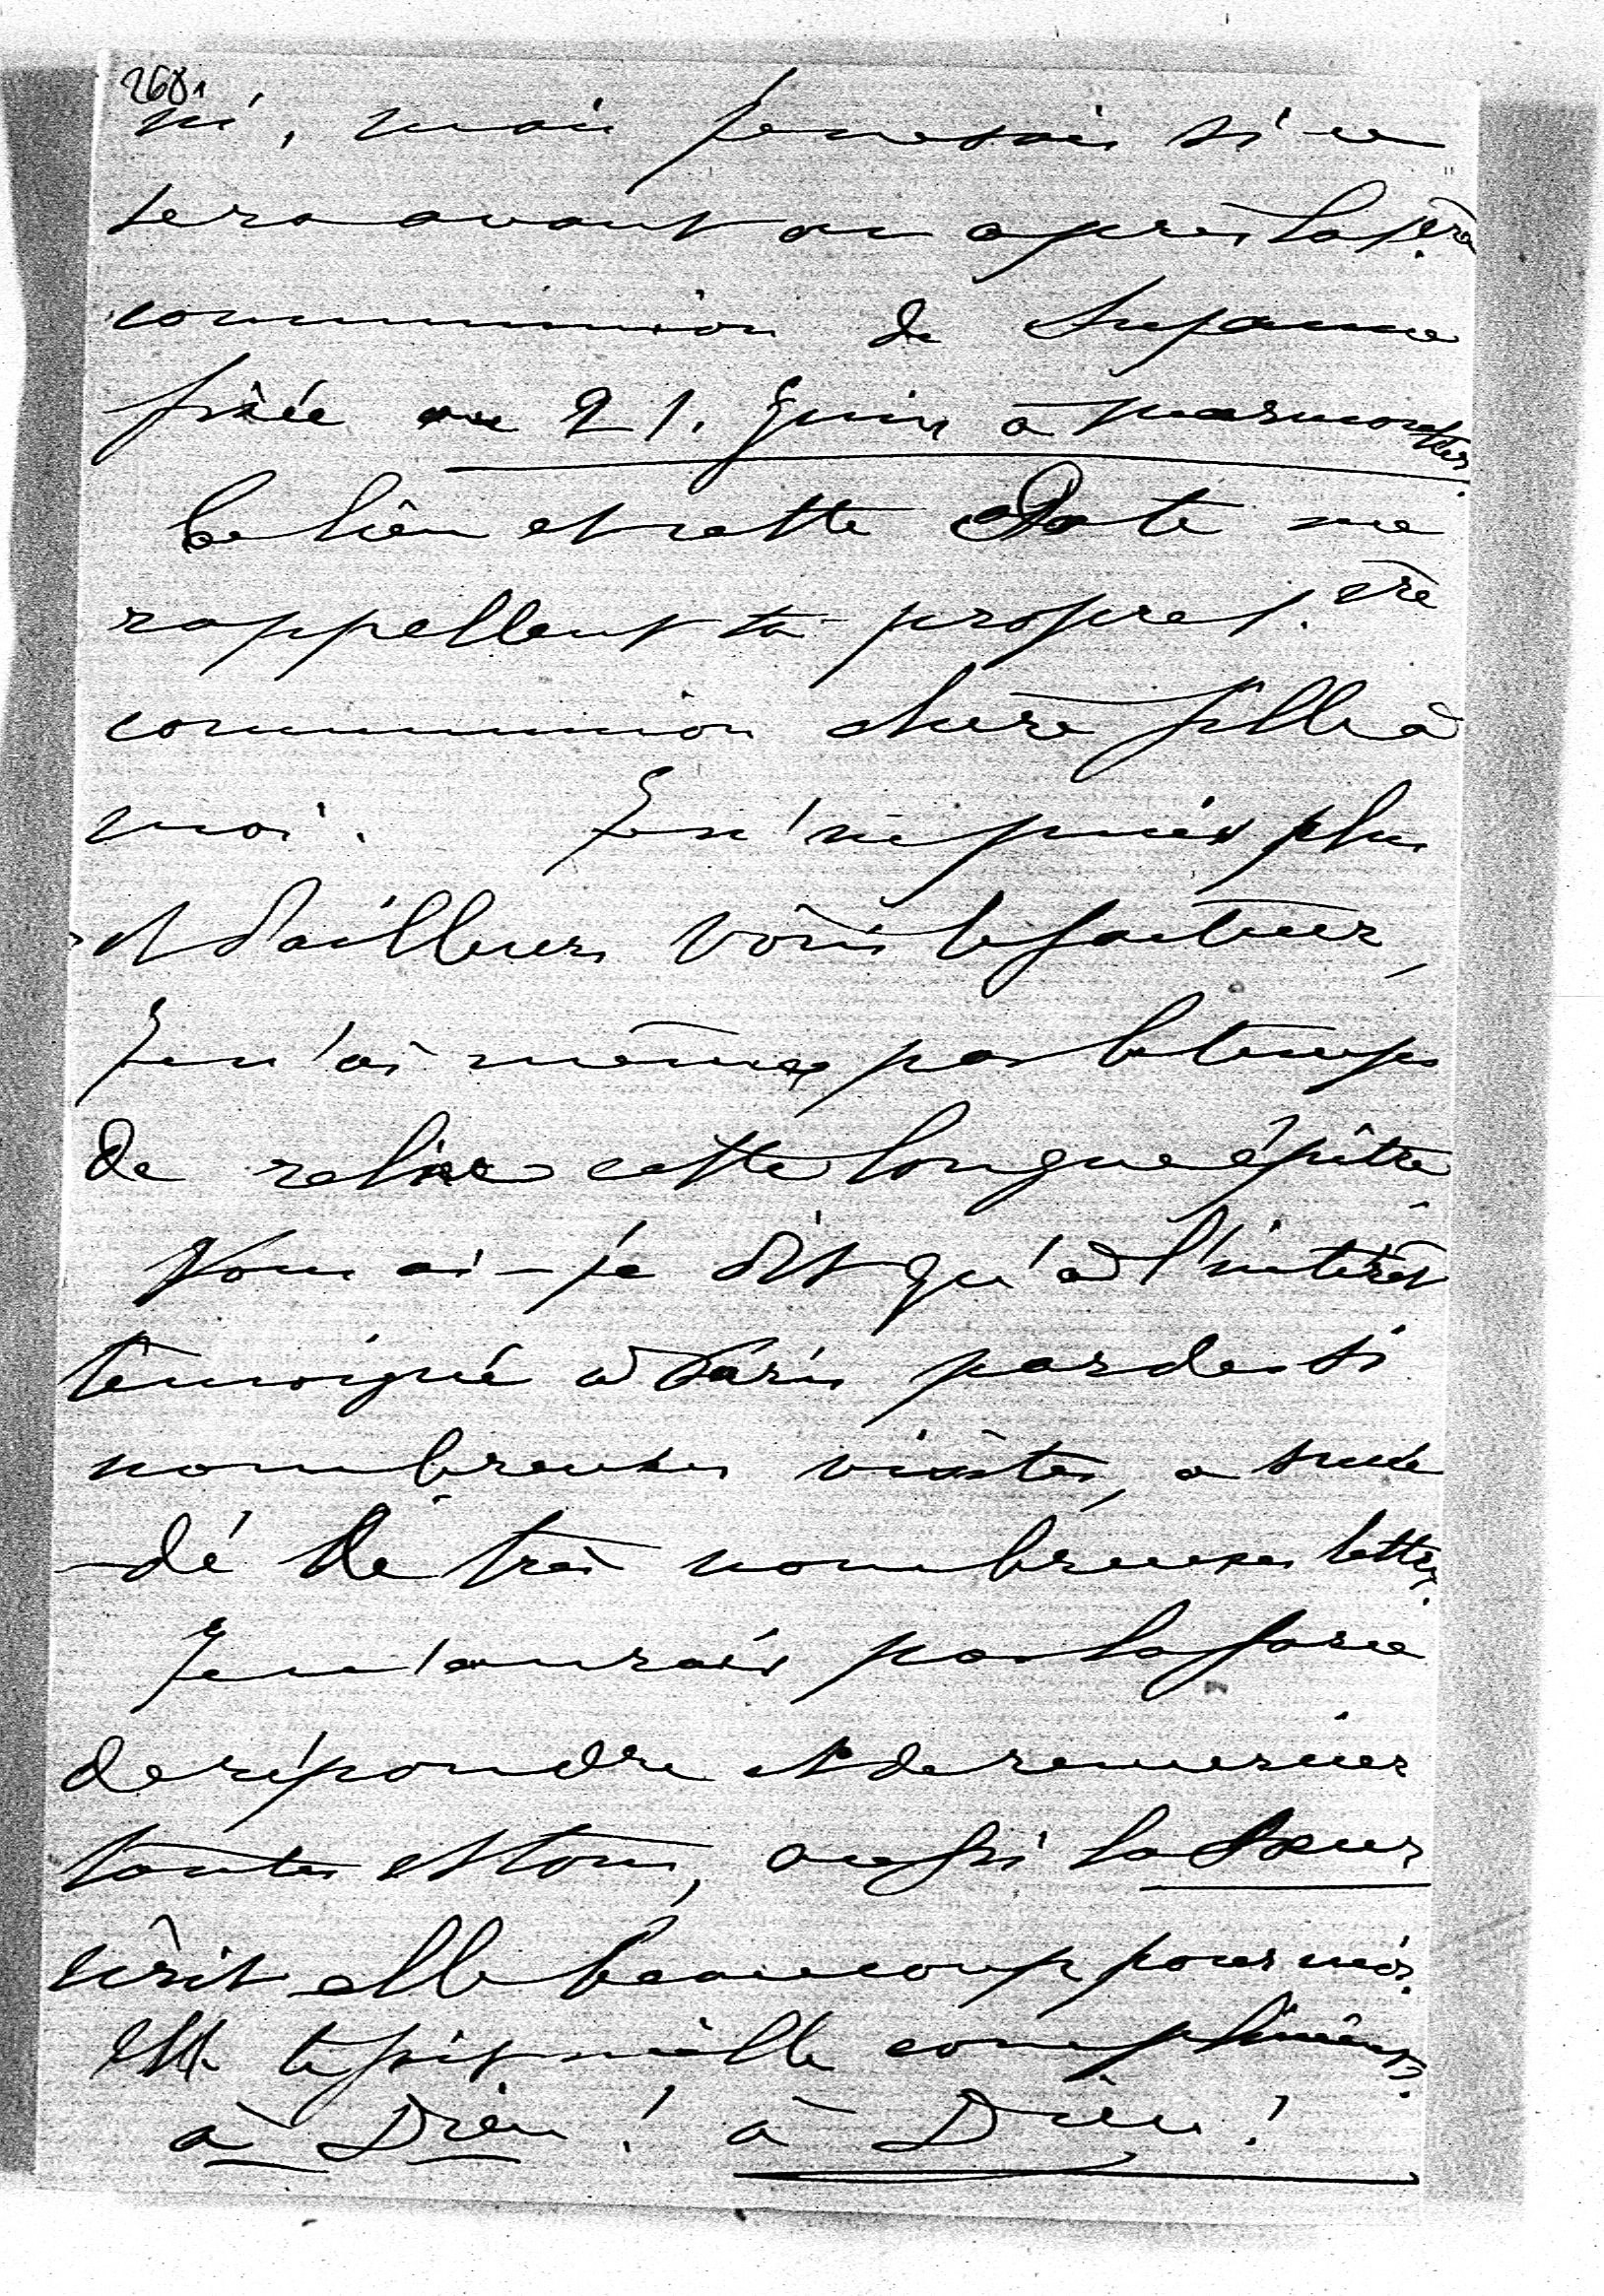 268
ni, mais je ne sais si ce
sera avant ou après la 1.ère
communion de Suzanne
fixée au 21. Juin à Marmoutier.
Ce lieu et cette Date me
rappellent ta propre 1.ère
communion chère fille à
moi. Je n'en puis plus
et d'ailleurs voici le facteur,
Je n'ai même pas le temps
de relire cette longue épître
Vous ai-je dit qu'à l'intérêt
témoigné à Paris par de si
nombreuses visites, a succé
-dé de très nombreuses lettres.
Je n'aurais pas la force
de répondre et de remercier
toutes et tous, aussi la Sœur
écrit elle beaucoup pour moi.
Elle te fait mille compliments.
à Dieu! à Dieu!